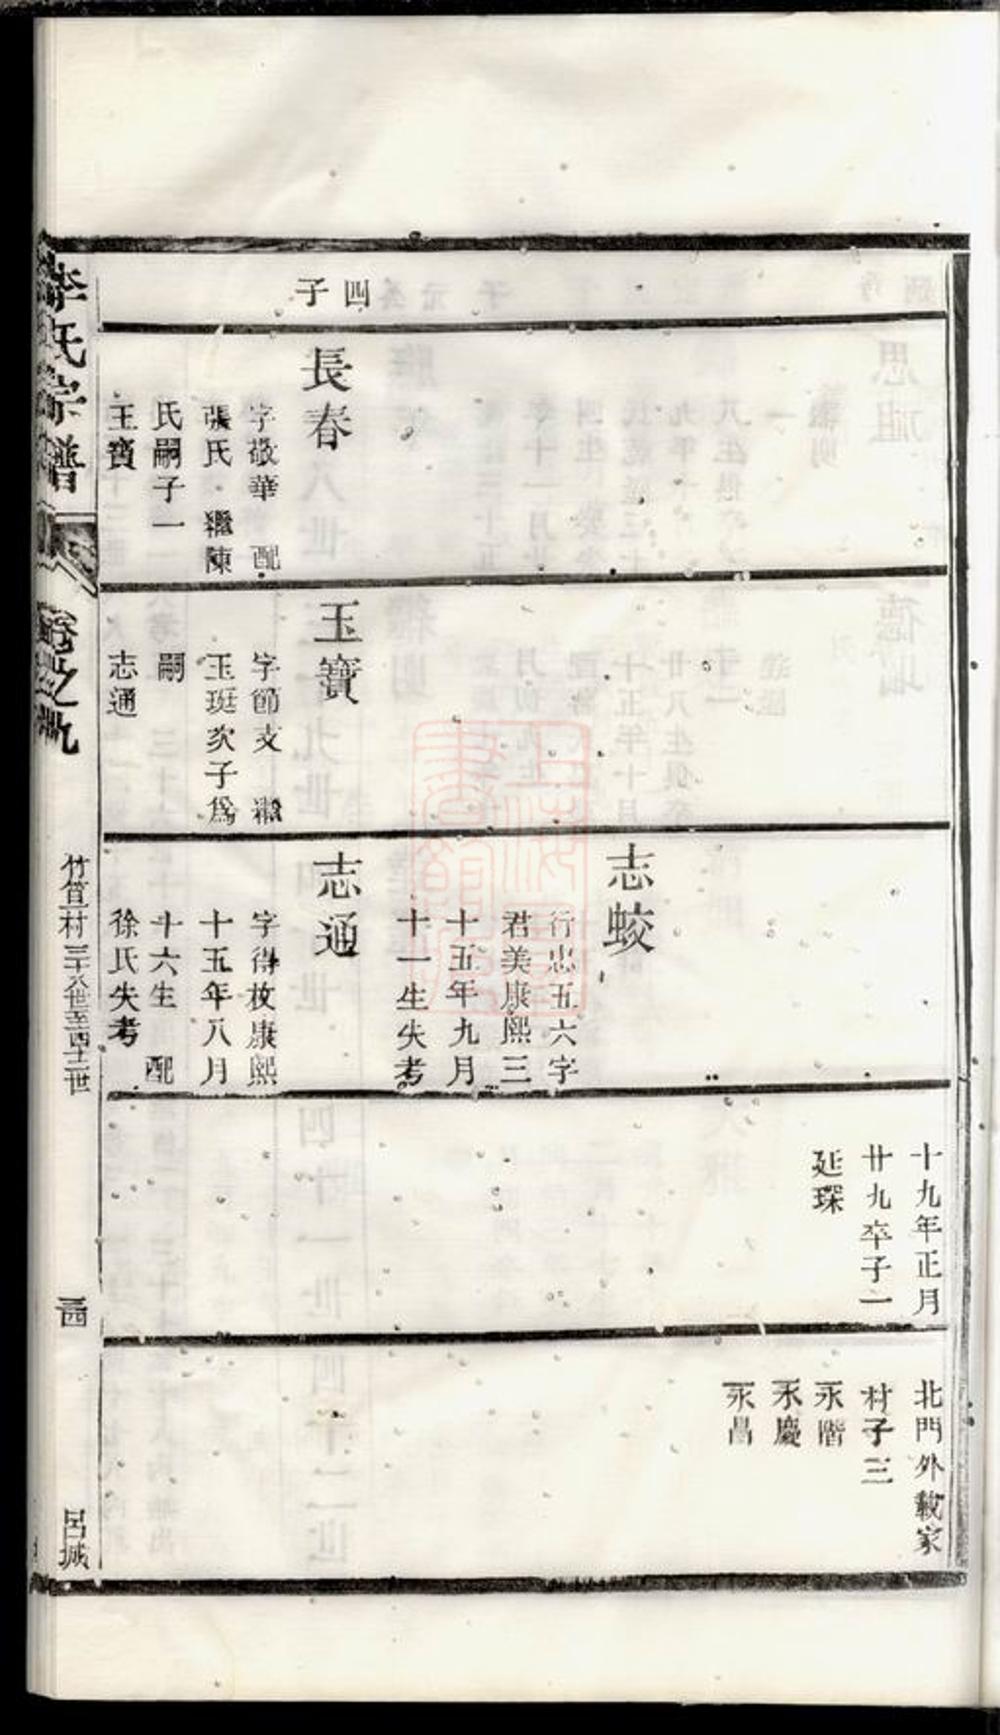 四
子
長春
字敬華 配
張氏 繼陳
氏嗣子一
玉寶
玉寶
字節支 繼
玉珽次子爲
嗣
志通
志蛟
行忠五六字
君美康熙三
十五年九月
十一生失考
志通
字得枚康熙
十五年八月
十六生 配
徐氏失考
十九年正月
廿九卒子一
延琛
北門外載家
村子三
永階
永慶
永昌
李氏宗譜
卷之九
竹筻村三十八世至四十二世
三四
呂城